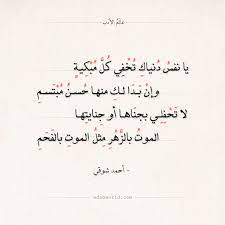 عالم الأدب
يا نفسُ دُنياكِ تُخْفي كُلَّ مُبْكِيةٍ
وإنْ بَدَا لكِ منها حُسنُ مُبتَسمِ
لا تَحْفِلِي بجَناهَا أو جنايتِها
الموتُ بالزَّهْرِ مثلُ الموتِ بالفَحَمِ
- أحمد شوقي -
adabworld.com